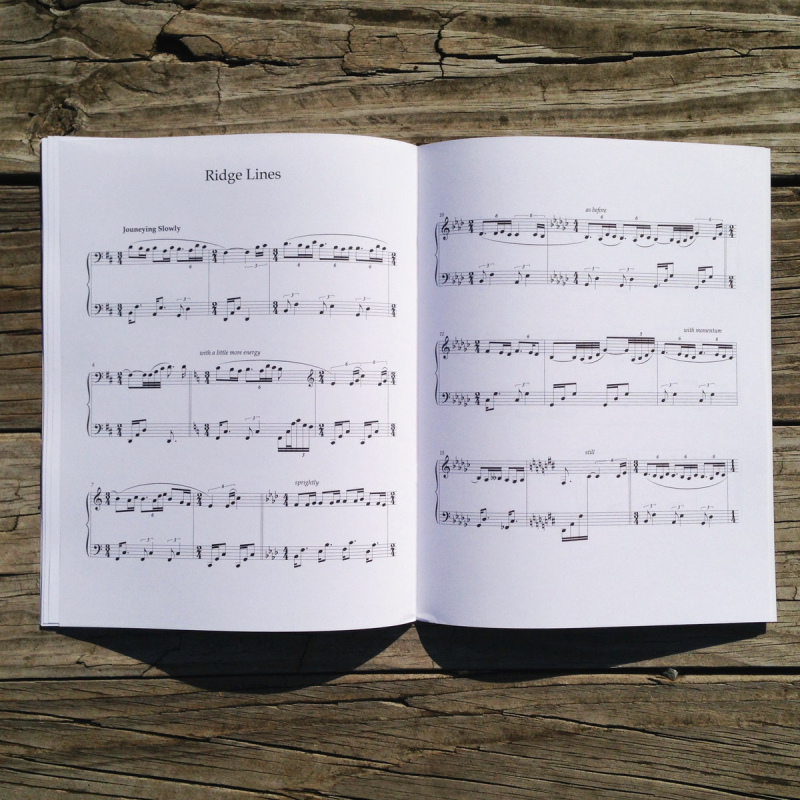 Ridge Lines
Jouneying Slowly
with a little more energy
sprightly
as before
with momentum
still